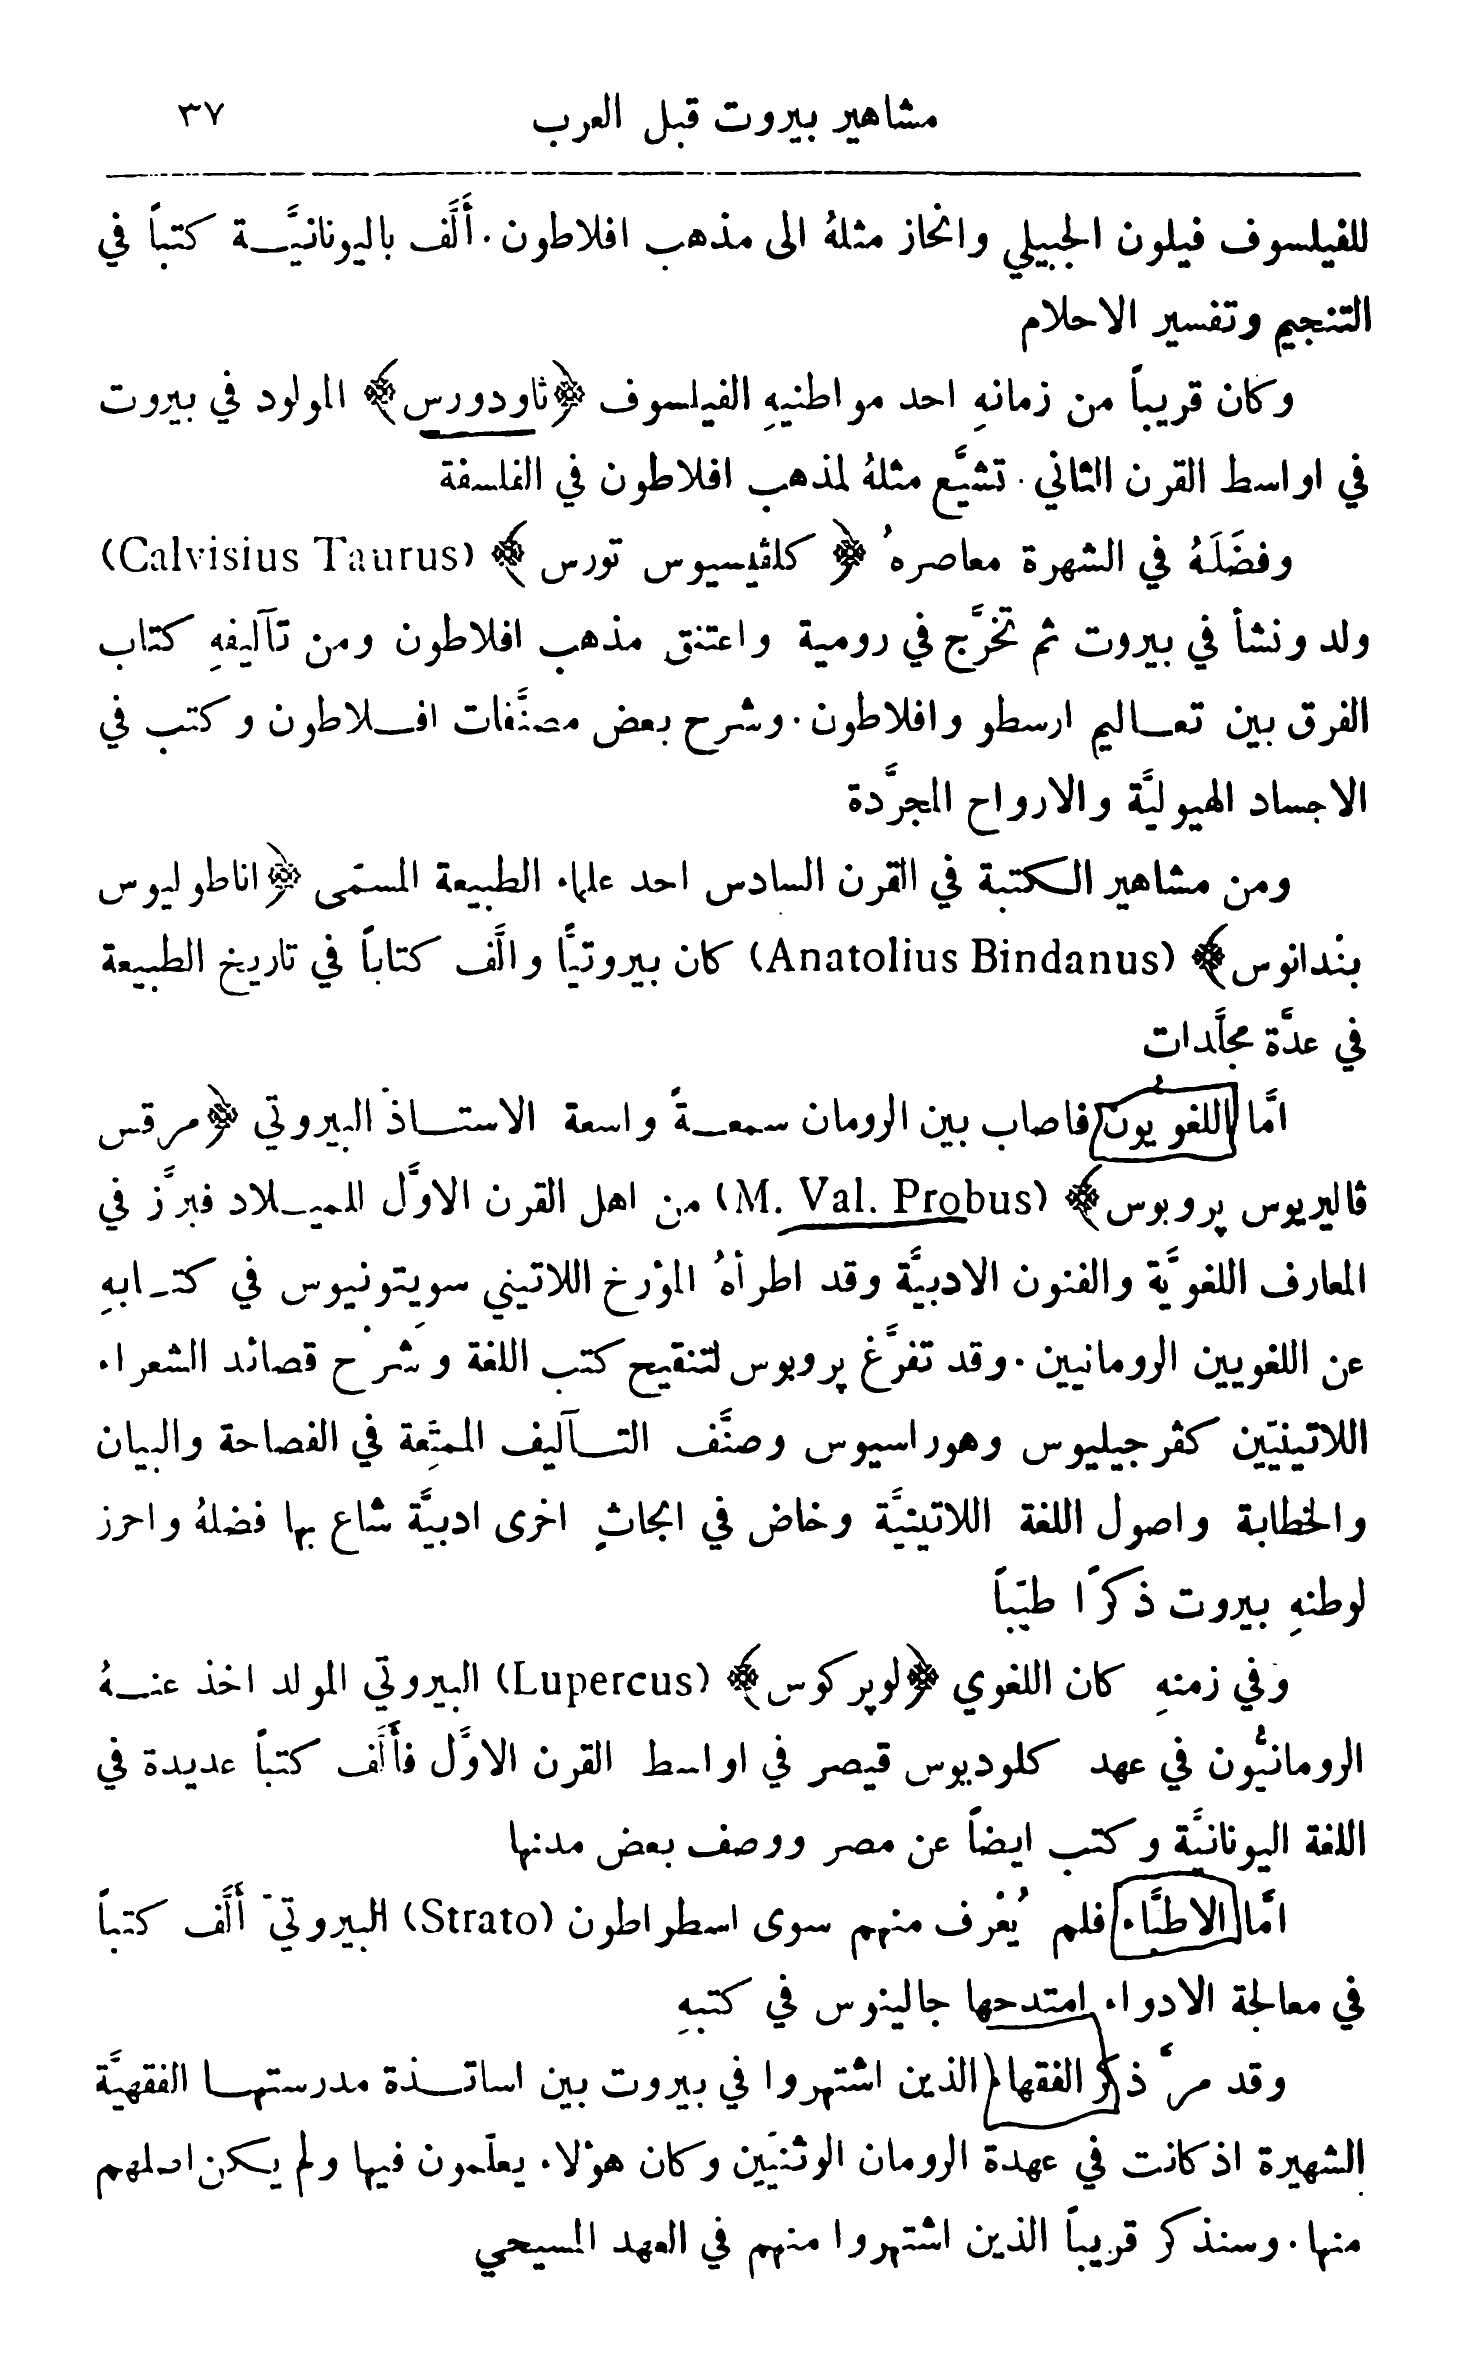 مشاهير بيروت قبل العرب ٣٧
للفيلسوف فيلون الجبيلي وانحاز مثلهُ الى مذهب افلاطون. أَلَّف باليونانيَّة كتباً في
التنجيم وتفسير الاحلام
وكان قريباً من زمانهِ احد مواطنيهِ الفيلسوف ﴿ثاودورس﴾ المولود في بيروت
في اواسط القرن الثاني. تشيَّع مثلهُ لمذهب افلاطون في الفلسفة
وفضَلَهُ في الشهرة معاصرهُ ﴿كلڤيسيوس تورس﴾ (Calvisius Taurus)
ولد ونشأ في بيروت ثم تخرَّج في رومية واعتنق مذهب افلاطون ومن تآليفهِ كتاب
الفرق بين تعاليم ارسطو وافلاطون. وشرح بعض مصنَّفات افلاطون وكتب في
الاجساد الهيوليَّة والارواح المجرَّدة
ومن مشاهير الكتبة في القرن السادس احد علماء الطبيعة المسمّى ﴿اناطوليوس
بنْدانوس﴾ (Anatolius Bindanus) كان بيروتيًّا والَّف كتاباً في تاريخ الطبيعة
في عدَّة مجلَّدات
امَّا اللغويون فاصاب بين الرومان سمعةً واسعة الاستاذ البيروتي ﴿مرقس
ڤاليريوس پروبوس﴾ (M. Val. Probus) من اهل القرن الاوَّل للميلاد فبرَّز في
المعارف اللغويَّة والفنون الادبيَّة وقد اطرأهُ المؤرخ اللاتيني سويِتونيوس في كتابهِ
عن اللغويين الرومانيين. وقد تفرَّغ پروبوس لتنقيح كتب اللغة وشرح قصائد الشعراء
اللاتينيّين كڤرجيليوس وهوراسيوس وصنَّف التآليف الممتِعة في الفصاحة والبيان
والخطابة واصول اللغة اللاتينيَّة وخاض في ابحاثٍ اخرى ادبيَّة شاع بها فضلهُ واحرز
لوطنهِ بيروت ذكرًا طيّباً
وفي زمنهِ كان اللغوي ﴿لوپركوس﴾ (Lupercus) البيروتي المولد اخذ عنهُ
الرومانيُّون في عهد كلوديوس قيصر في اواسط القرن الاوَّل فأَلَّف كتباً عديدة في
اللغة اليونانيَّة وكتب ايضاً عن مصر ووصف بعض مدنها
امَّا الاطبَّاء فلم يُعْرف منهم سوى اسطراطون (Strato) البيروتيّ أَلَّف كتباً
في معالجة الادواء امتدحها جالينوس في كتبهِ
وقد مرَّ ذكر الفقهاء الذين اشتهروا في بيروت بين اساتذة مدرستها الفقهيَّة
الشهيرة اذ كانت في عهدة الرومان الوثنيّين وكان هؤلاء يعلّمون فيها ولم يكن اصلهم
منها. وسنذكر قريباً الذين اشتهروا منهم في العهد المسيحي